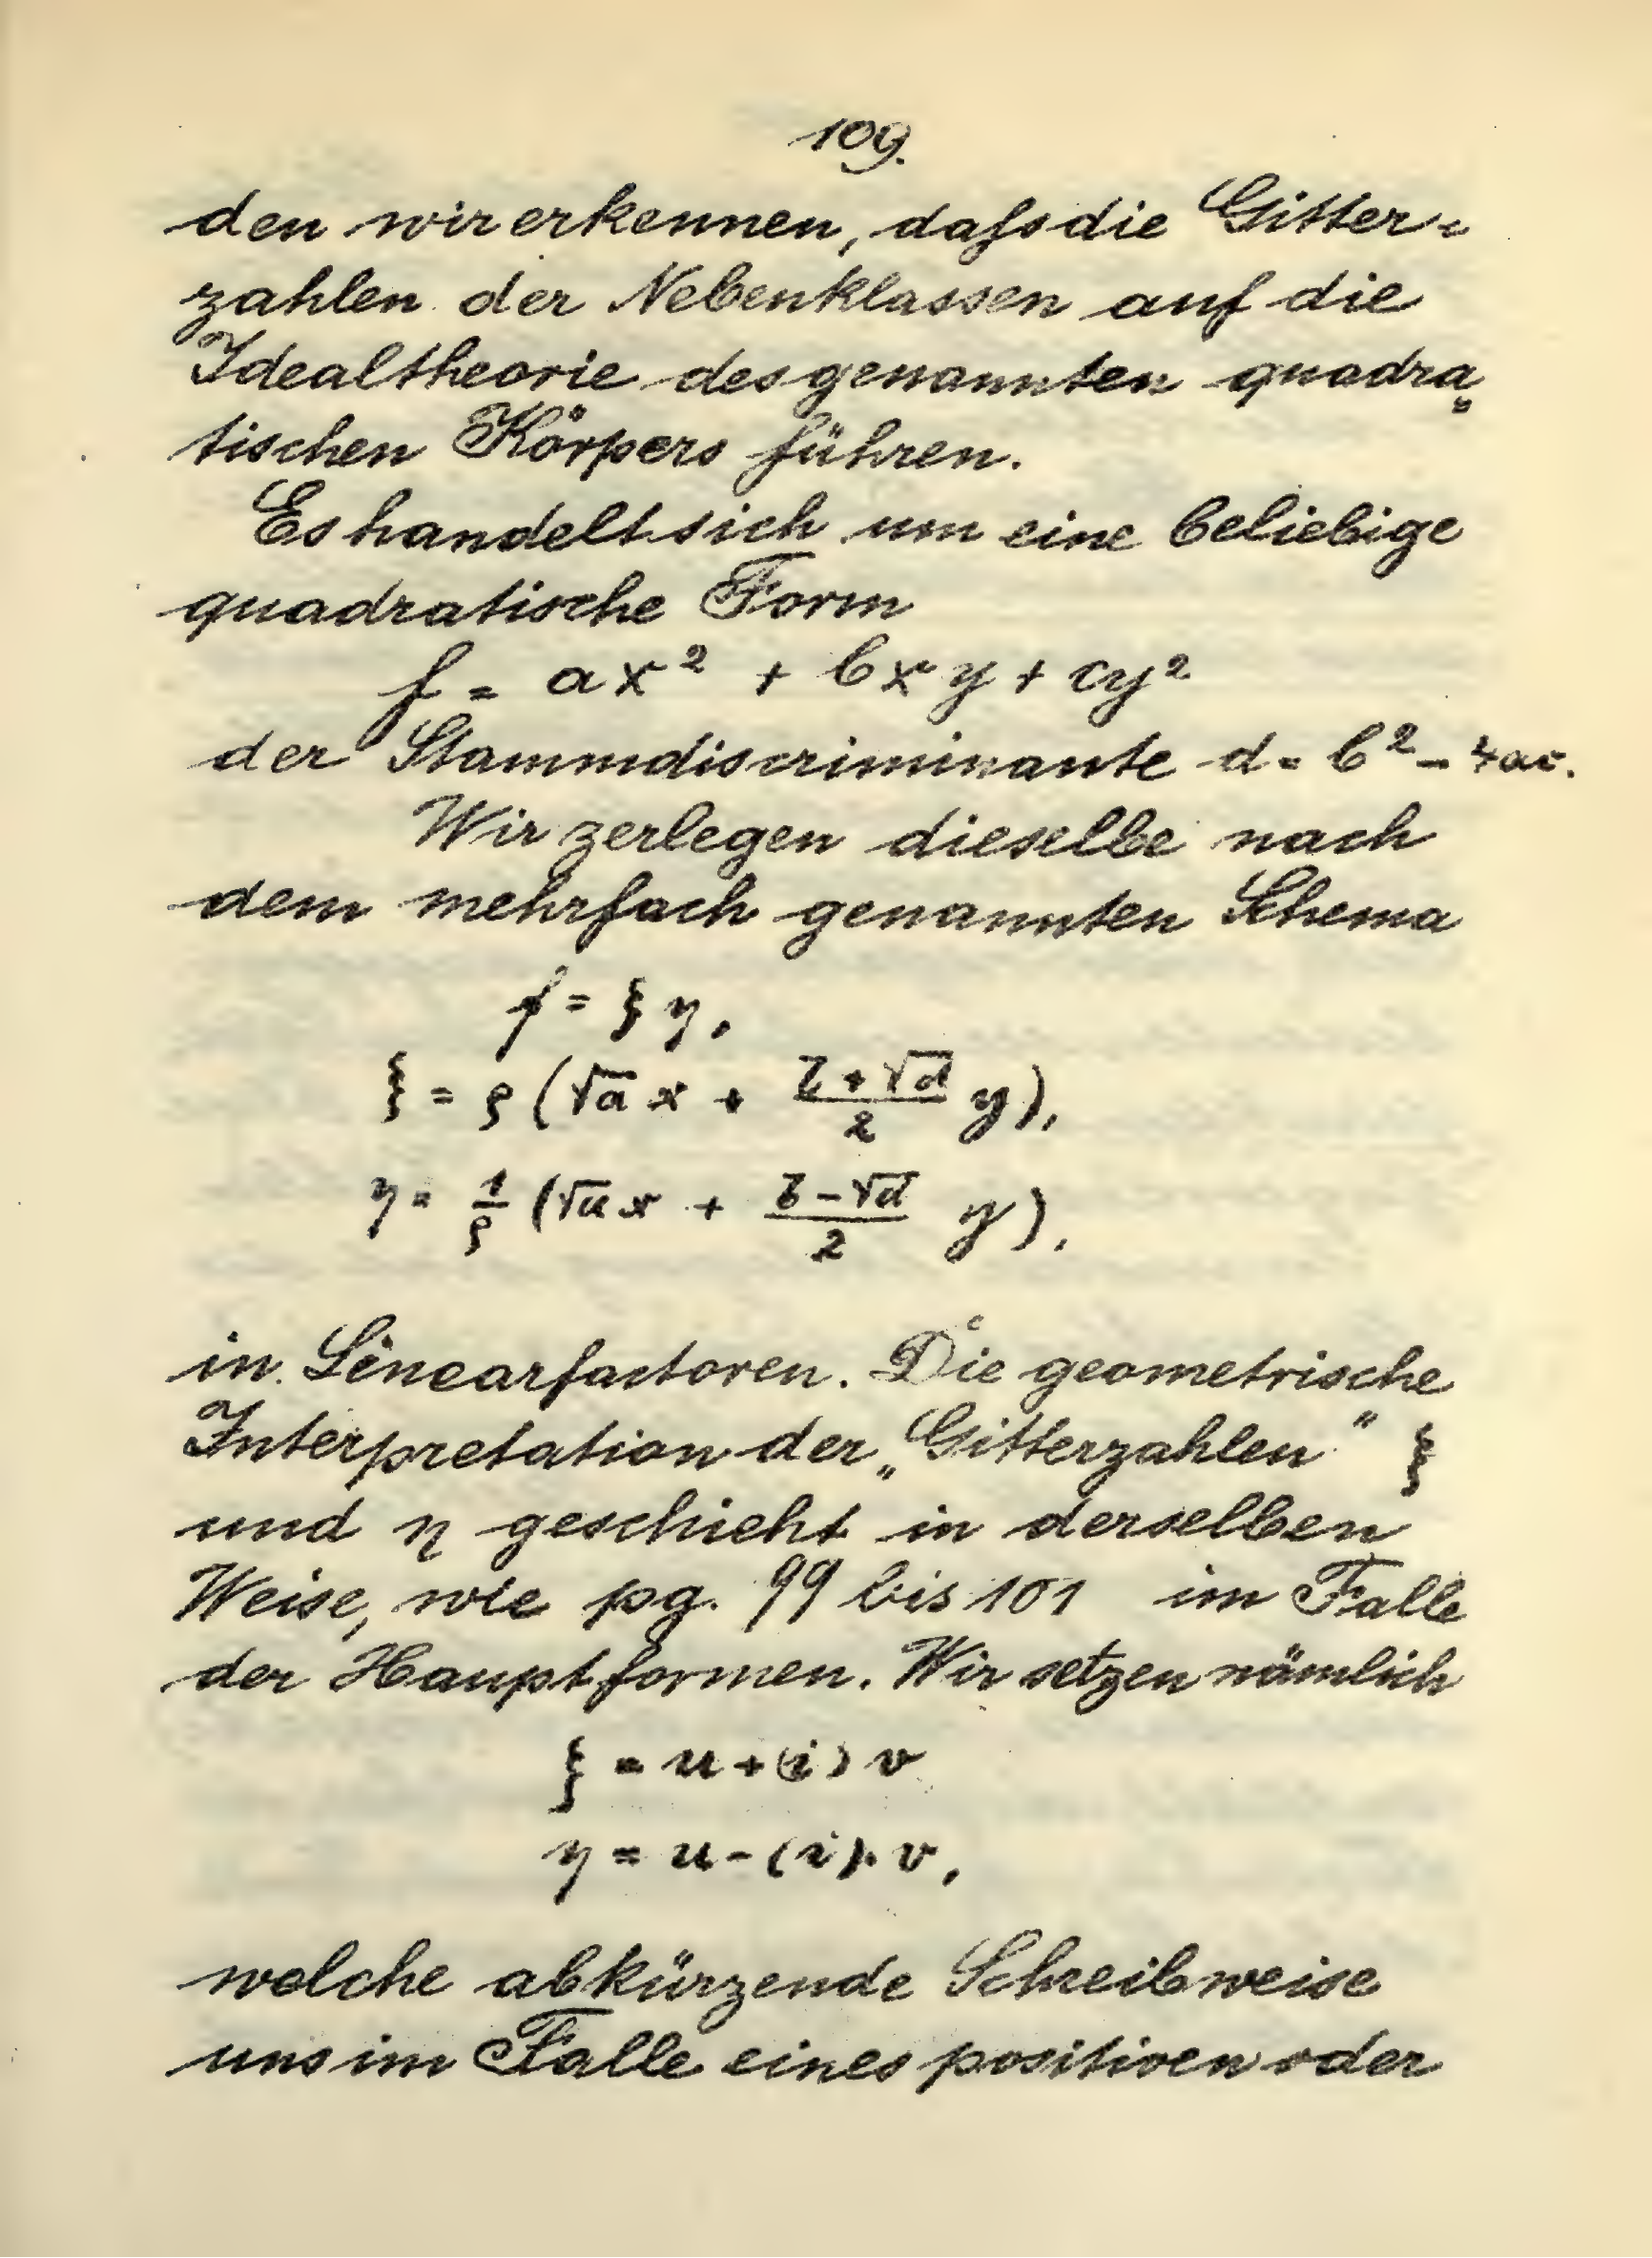 109.
den wir erkennen, daſs die Gitter-
zahlen der Nebenklassen auf die
Idealtheorie des genannten quadra„
tischen Körpers führen.
Es handelt sich um eine beliebige
quadratische Form
f = ax² + bxy + cy²
der Stammdiscriminante d = b² - 4ac.
Wir zerlegen dieselbe nach
dem mehrfach genannten Schema
f = ξ η,
ξ = ρ (√a x + (b + √d)/2 y),
η = 1/ρ (√a x + (b - √d)/2 y),
in Linearfactoren. Die geometrische
Interpretation der „Gitterzahlen" ξ
und η geschieht in derselben
Weise, wie pg. 99 bis 101 im Falle
der Hauptformen. Wir setzen nämlich
ξ = u + (i) v
η = u - (i). v,
welche abkürzende Schreibweise
uns im Falle eines positiven oder